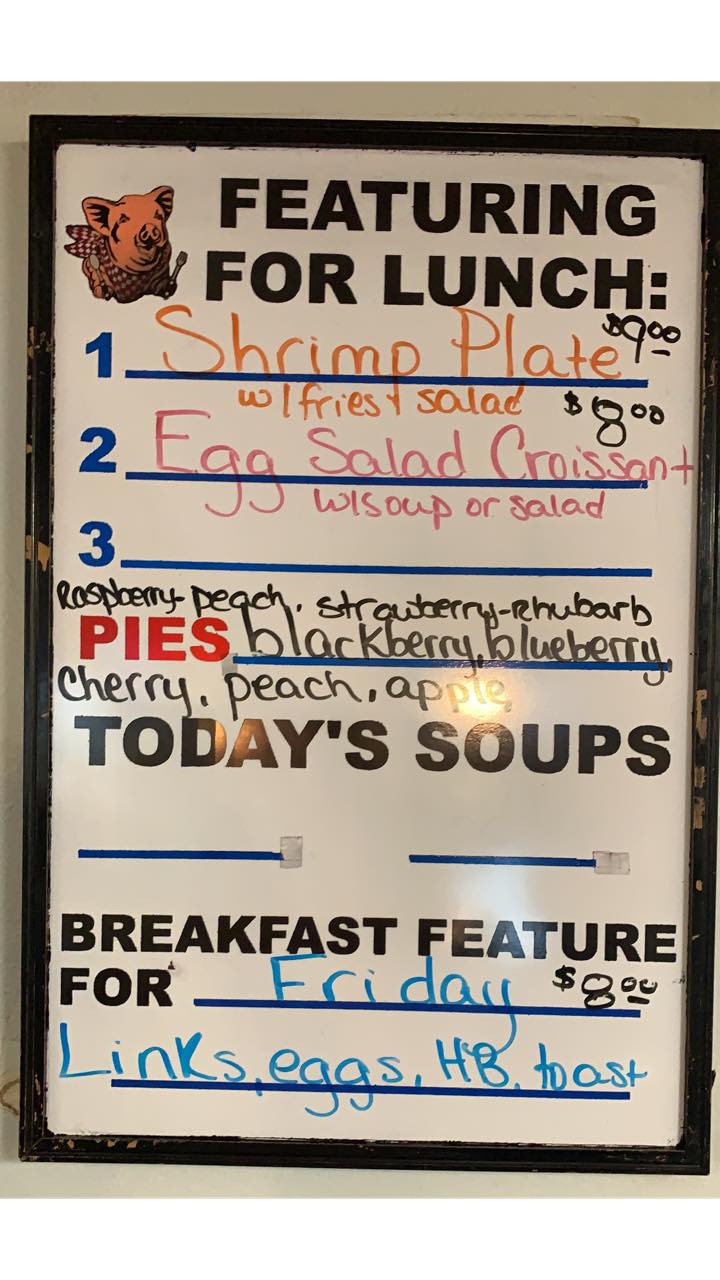 FEATURING
FOR LUNCH:
1 Shrimp Plate $9.00
w/fries + salad $8.00
2 Egg Salad Croissant
w/soup or salad
3
Raspberry-peach, strawberry-rhubarb
PIES blackberry, blueberry,
cherry, peach, apple
TODAY'S SOUPS
BREAKFAST FEATURE
FOR Friday $8.00
Links, eggs, HB, toast